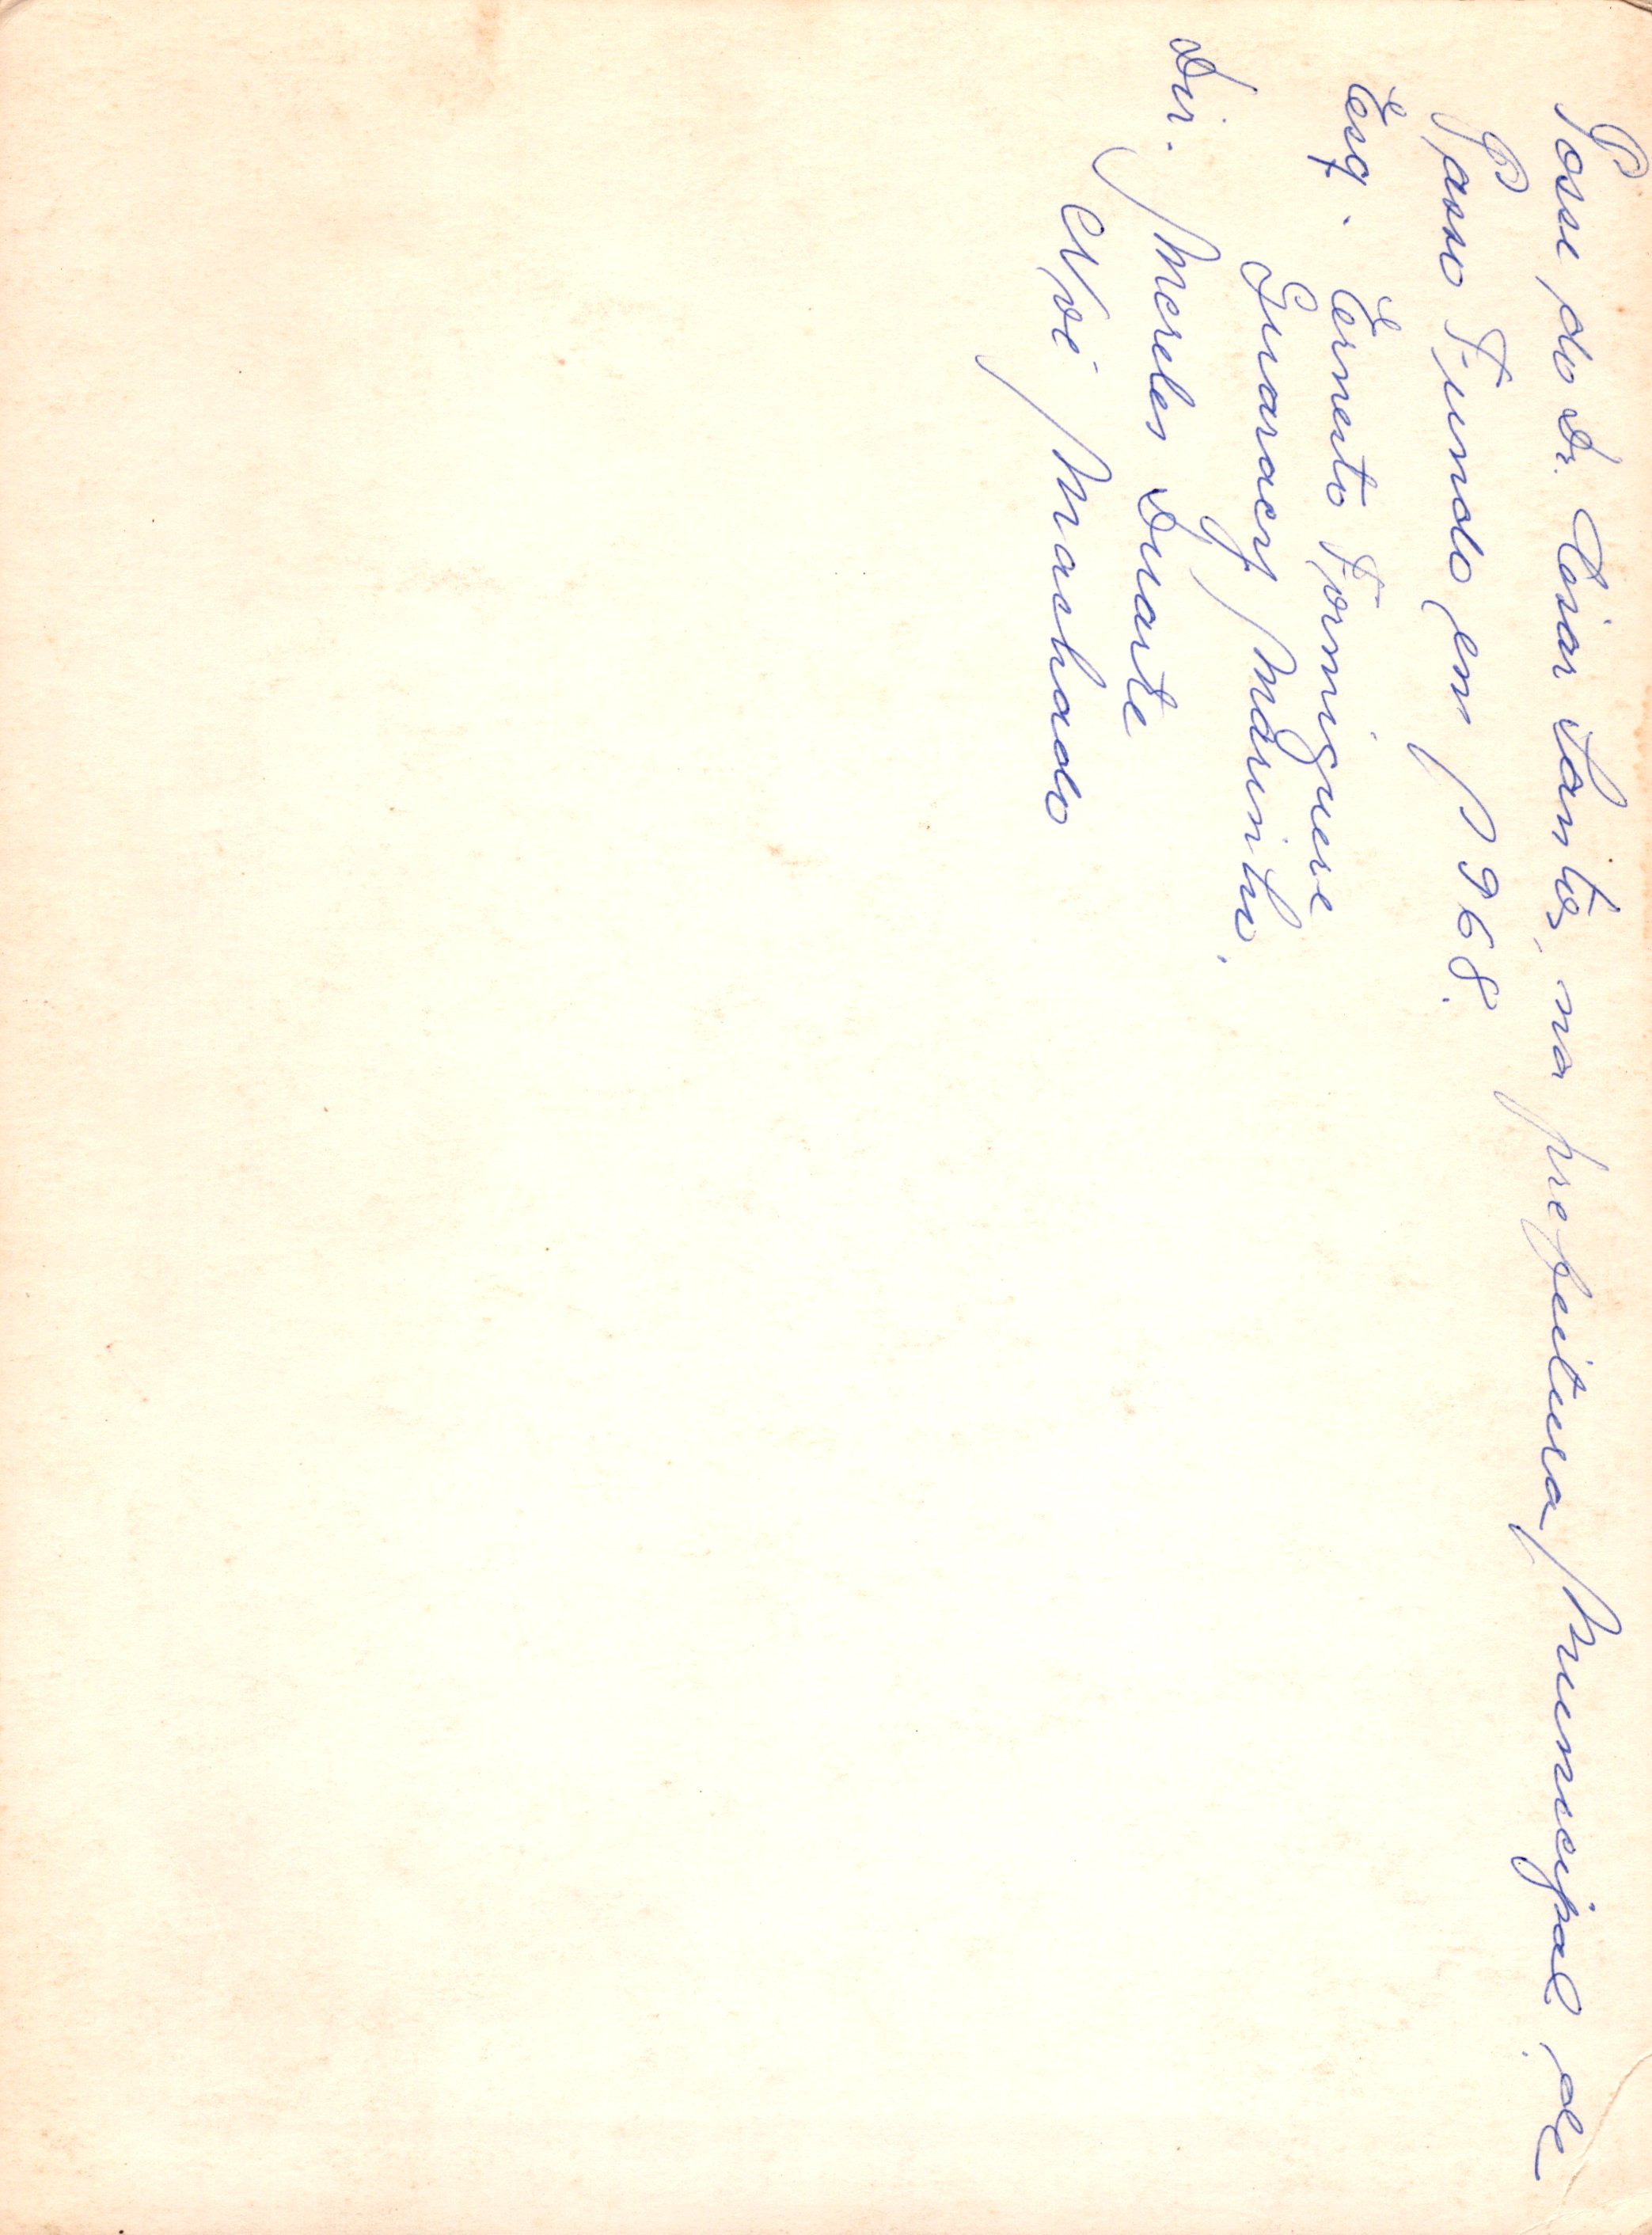 Posse do Dr. Cesar Santos, na prefeitura Municipal de
Passo Fundo em 1968.
Esq. Ernesto Formigueri
Guaracy Marinho.
Dir. Mereles Duarte
Noé Machado